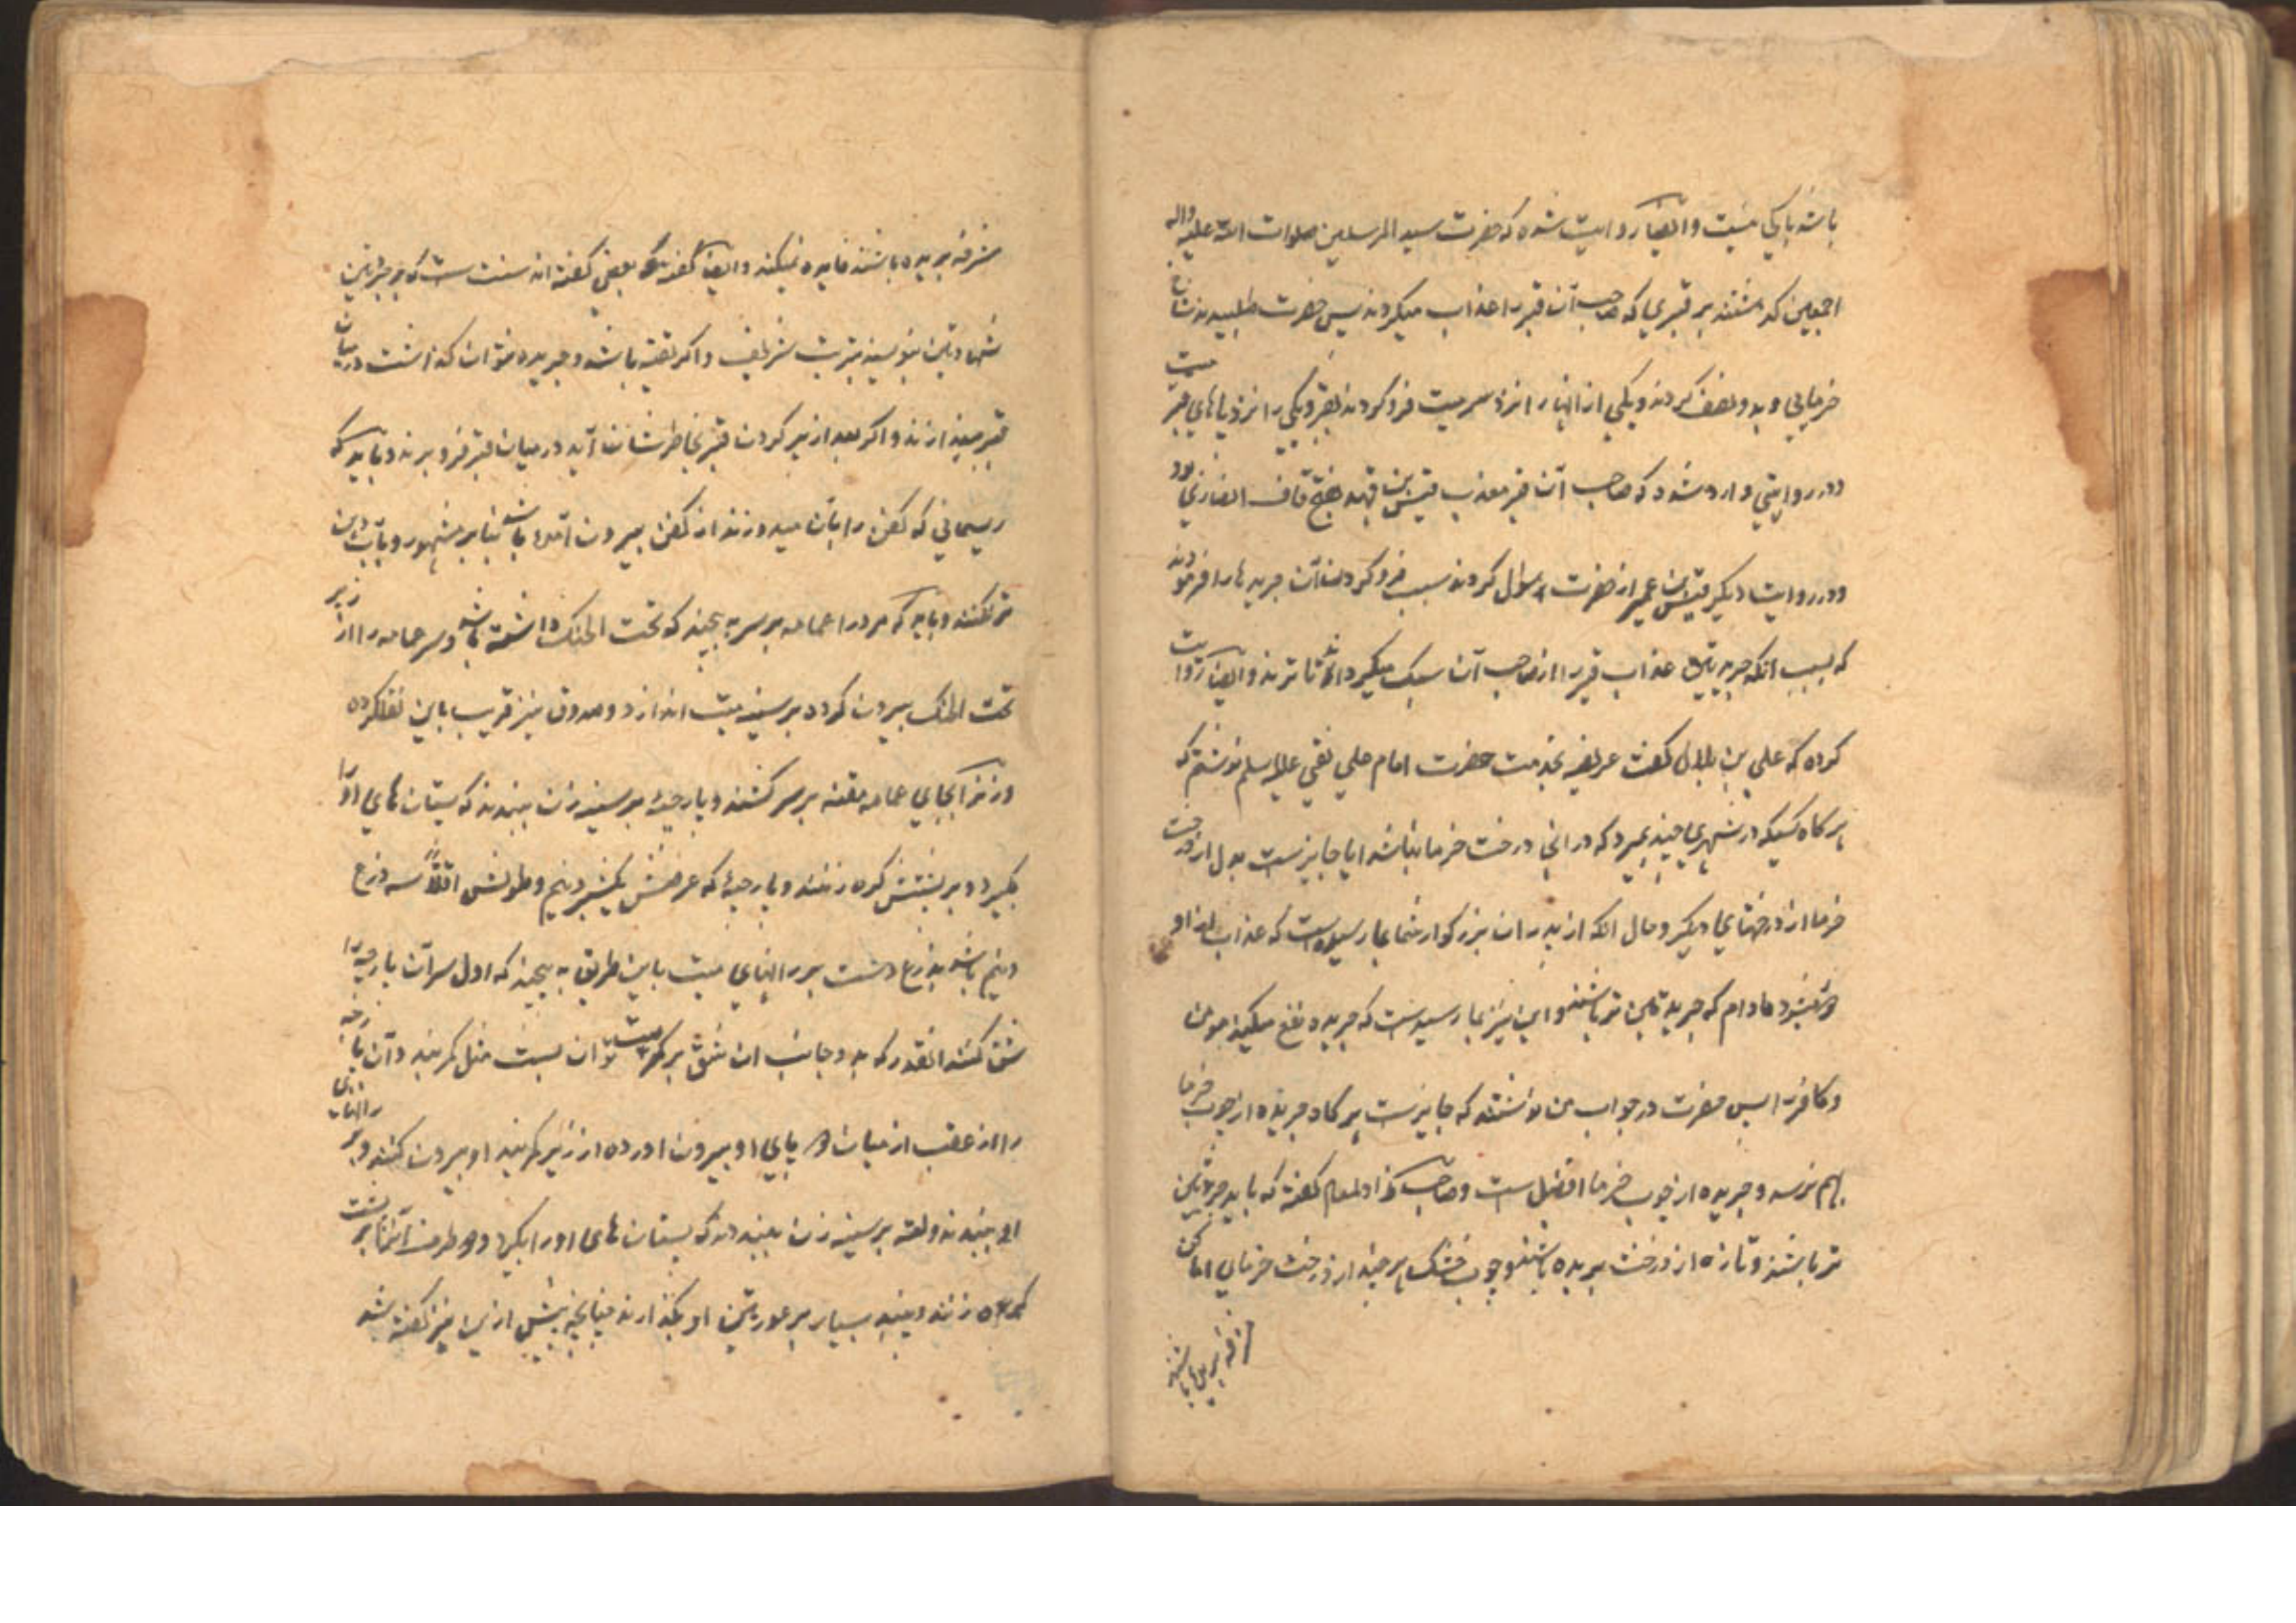 باشد با یکی میت و ایضا روایت شده که حضرت سید المرسلین صلوات الله علیه واله
اجمعین گذشتند بر قبری که صاحب آن قبر را عذاب میکردند پس حضرت طلبیدند شاخ
خرمایی و بدو نصف کردند و یکی از آنها را نزد سر میت فرو کردند بقبر و یکی را نزد پاهای میت
و در روایتی وارد شود که صاحب آن قبر معذب قیس بن فهد بفتح قاف انصاری بود
و در روایت دیگر قیس بن عمیر از حضرت سؤال کردند سبب فرو کردن آن جریدها را فرمودند
که بسبب آنکه جریدتین عذاب قبر را از صاحب آن سبک میگرداند تا ترند و ایضا روایت
کرده که علی بن بلال گفت عریضه بخدمت حضرت امام علی نقی علیه السلام نوشتم که
هرگاه کسیکه در شهری چند بمیرد که در آنجا درخت خرما نباشد ایا جایزست بدل از درخت
خرما از درختهای دیگر و حال آنکه از پدران بزرگوار شما بما رسیده است که عذاب از او
میشود مادام که جریدتین تر باشند و این نیز بما رسیدست که جریده نفع میکند مومن
و کافر را پس حضرت در جواب من نوشتند که جایزست هرگاه جریده از چوب خرما
بهم نرسد و جریده از چوب خرما افضل است و صاحب گفته که باید جریدتین
تر باشند و تازه از درخت بریده باشند و چوب خشک هر چند از درخت خرمایی اماکن
مشرفه بریده باشند
مشرفه بریده باشند فایده نمیکند و ایضا بعضی گفته اند سنت است که بر جریدتین
شهادتین بنویسند بتربت شریف و اگر تقیه باشد و جریده نتوان گذاشت در میان
قبر میندازند و اگر بعد از پر کردن قبر بخاطرشان آید در میان قبر فرو برند و باید که
ریسمانی که کفن را بان میدوزند از کفن بیرون آمده باشد بنا بر مشهور و بآب دهن
تر نکنند و باید که مرد را عمامه بر سر پیچند که تحت الحنک داشته باشد و سر عمامه را از زیر
تحت الحنک بیرون کرده بر سینه میت اندازد و صدوق نیز قریب باین نقل کرده
و زن را بجای عمامه مقنعه بر سر کشند و پارچه بر سینه زن ببندند که پستان های او را
بگیرد و بر پشتش گره زنند و پارچه که عرضش یکشبر و نیم و طولش اقلاً سه ذرع
و نیم باشد بذرع دست بر رانهای میت باین طریق به پیچند که اول سر آن پارچه را
شق کنند آنقدر که بدو جانب آن شق بر کمر میت توان بست مثل کمربند و آن پارچه
را از عقب از میان دو پای او بیرون اورده از زیر کمربند او بیرون کنند و بر رانهای
او ببندند و لفه بر سینه زن ببندند که پستان های او را بگیرد و دو طرف آنرا بر پشت
گره زنند و پنبه بسیار بر عورتین او بگذارند چنانچه پیش از این نیز گفته شد